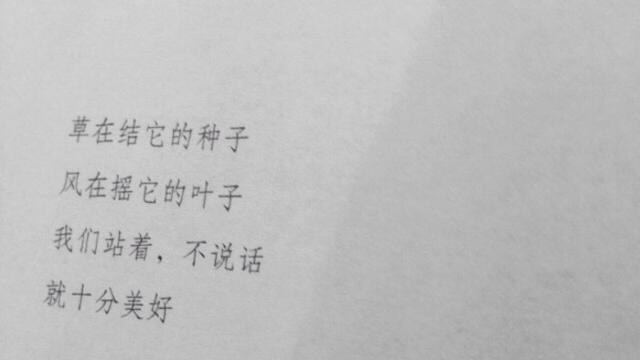 草在结它的种子
风在摇它的叶子
我们站着，不说话
就十分美好